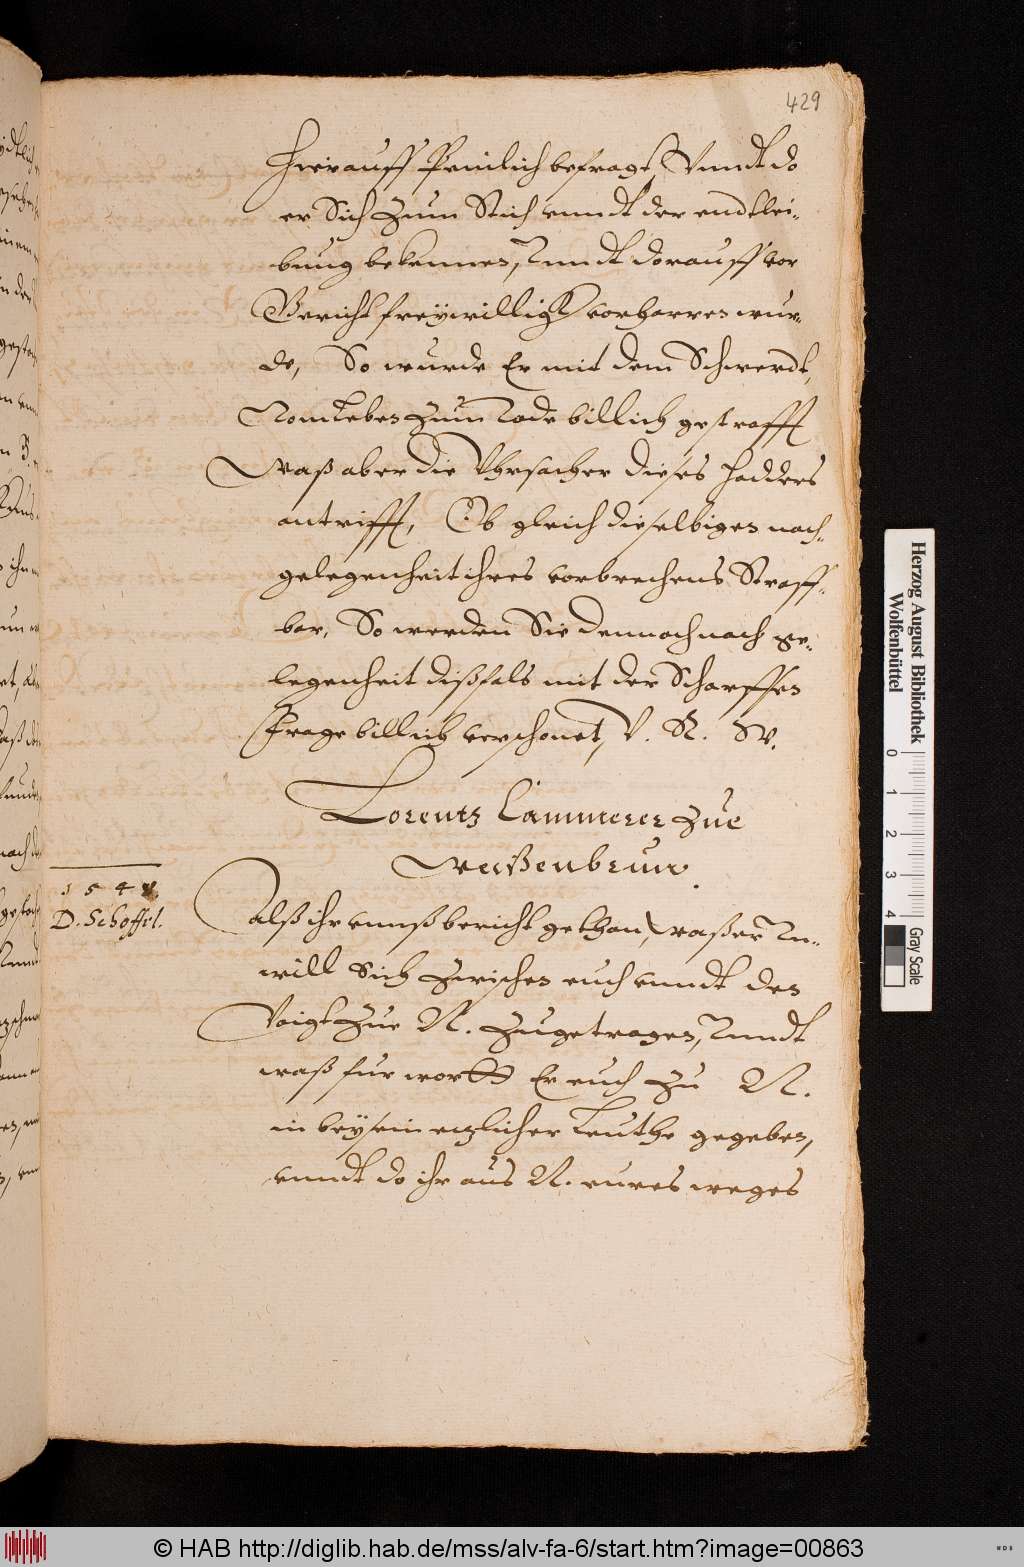 429
Hierauff Peinlich befragt, Vnndt do
er Sich zum Stich vnndt der endtlei-
bung bekennen, Vnndt dorauff vor
Gericht freÿwillig vorharren wur-
de, So wurde Er mit dem Schwerdt,
Vom Leben zum Tode billich gestrafft
Waß aber die Vhrsacher dieses Hadders
antrifft, Ob gleich dieselbigen nach-
gelegenheit ihres vorbrechens Straff-
bar, So werden Sie dennoch nach ge-
legenheit dißfals mit der Scharffen
Frage billich verschonet, V. R. W.
Lorentz Cammerer zue
Weißenbrun.
154
D. Schoffel.
Alß ihr vnnß bericht gethan, waßer Vn-
will Sich zwischen euch vnndt den
Voigt zue N. zugetragen, Vnndt
waß fur wortt Er euch zu N.
in beÿsein etzlicher Leuthe gegeben,
vnndt do ihr aus N. eures weges
Herzog August Bibliothek
Wolfenbüttel
0 1 2 3 4
Gray Scale
© HAB http://diglib.hab.de/mss/alv-fa-6/start.htm?image=00863
WDB